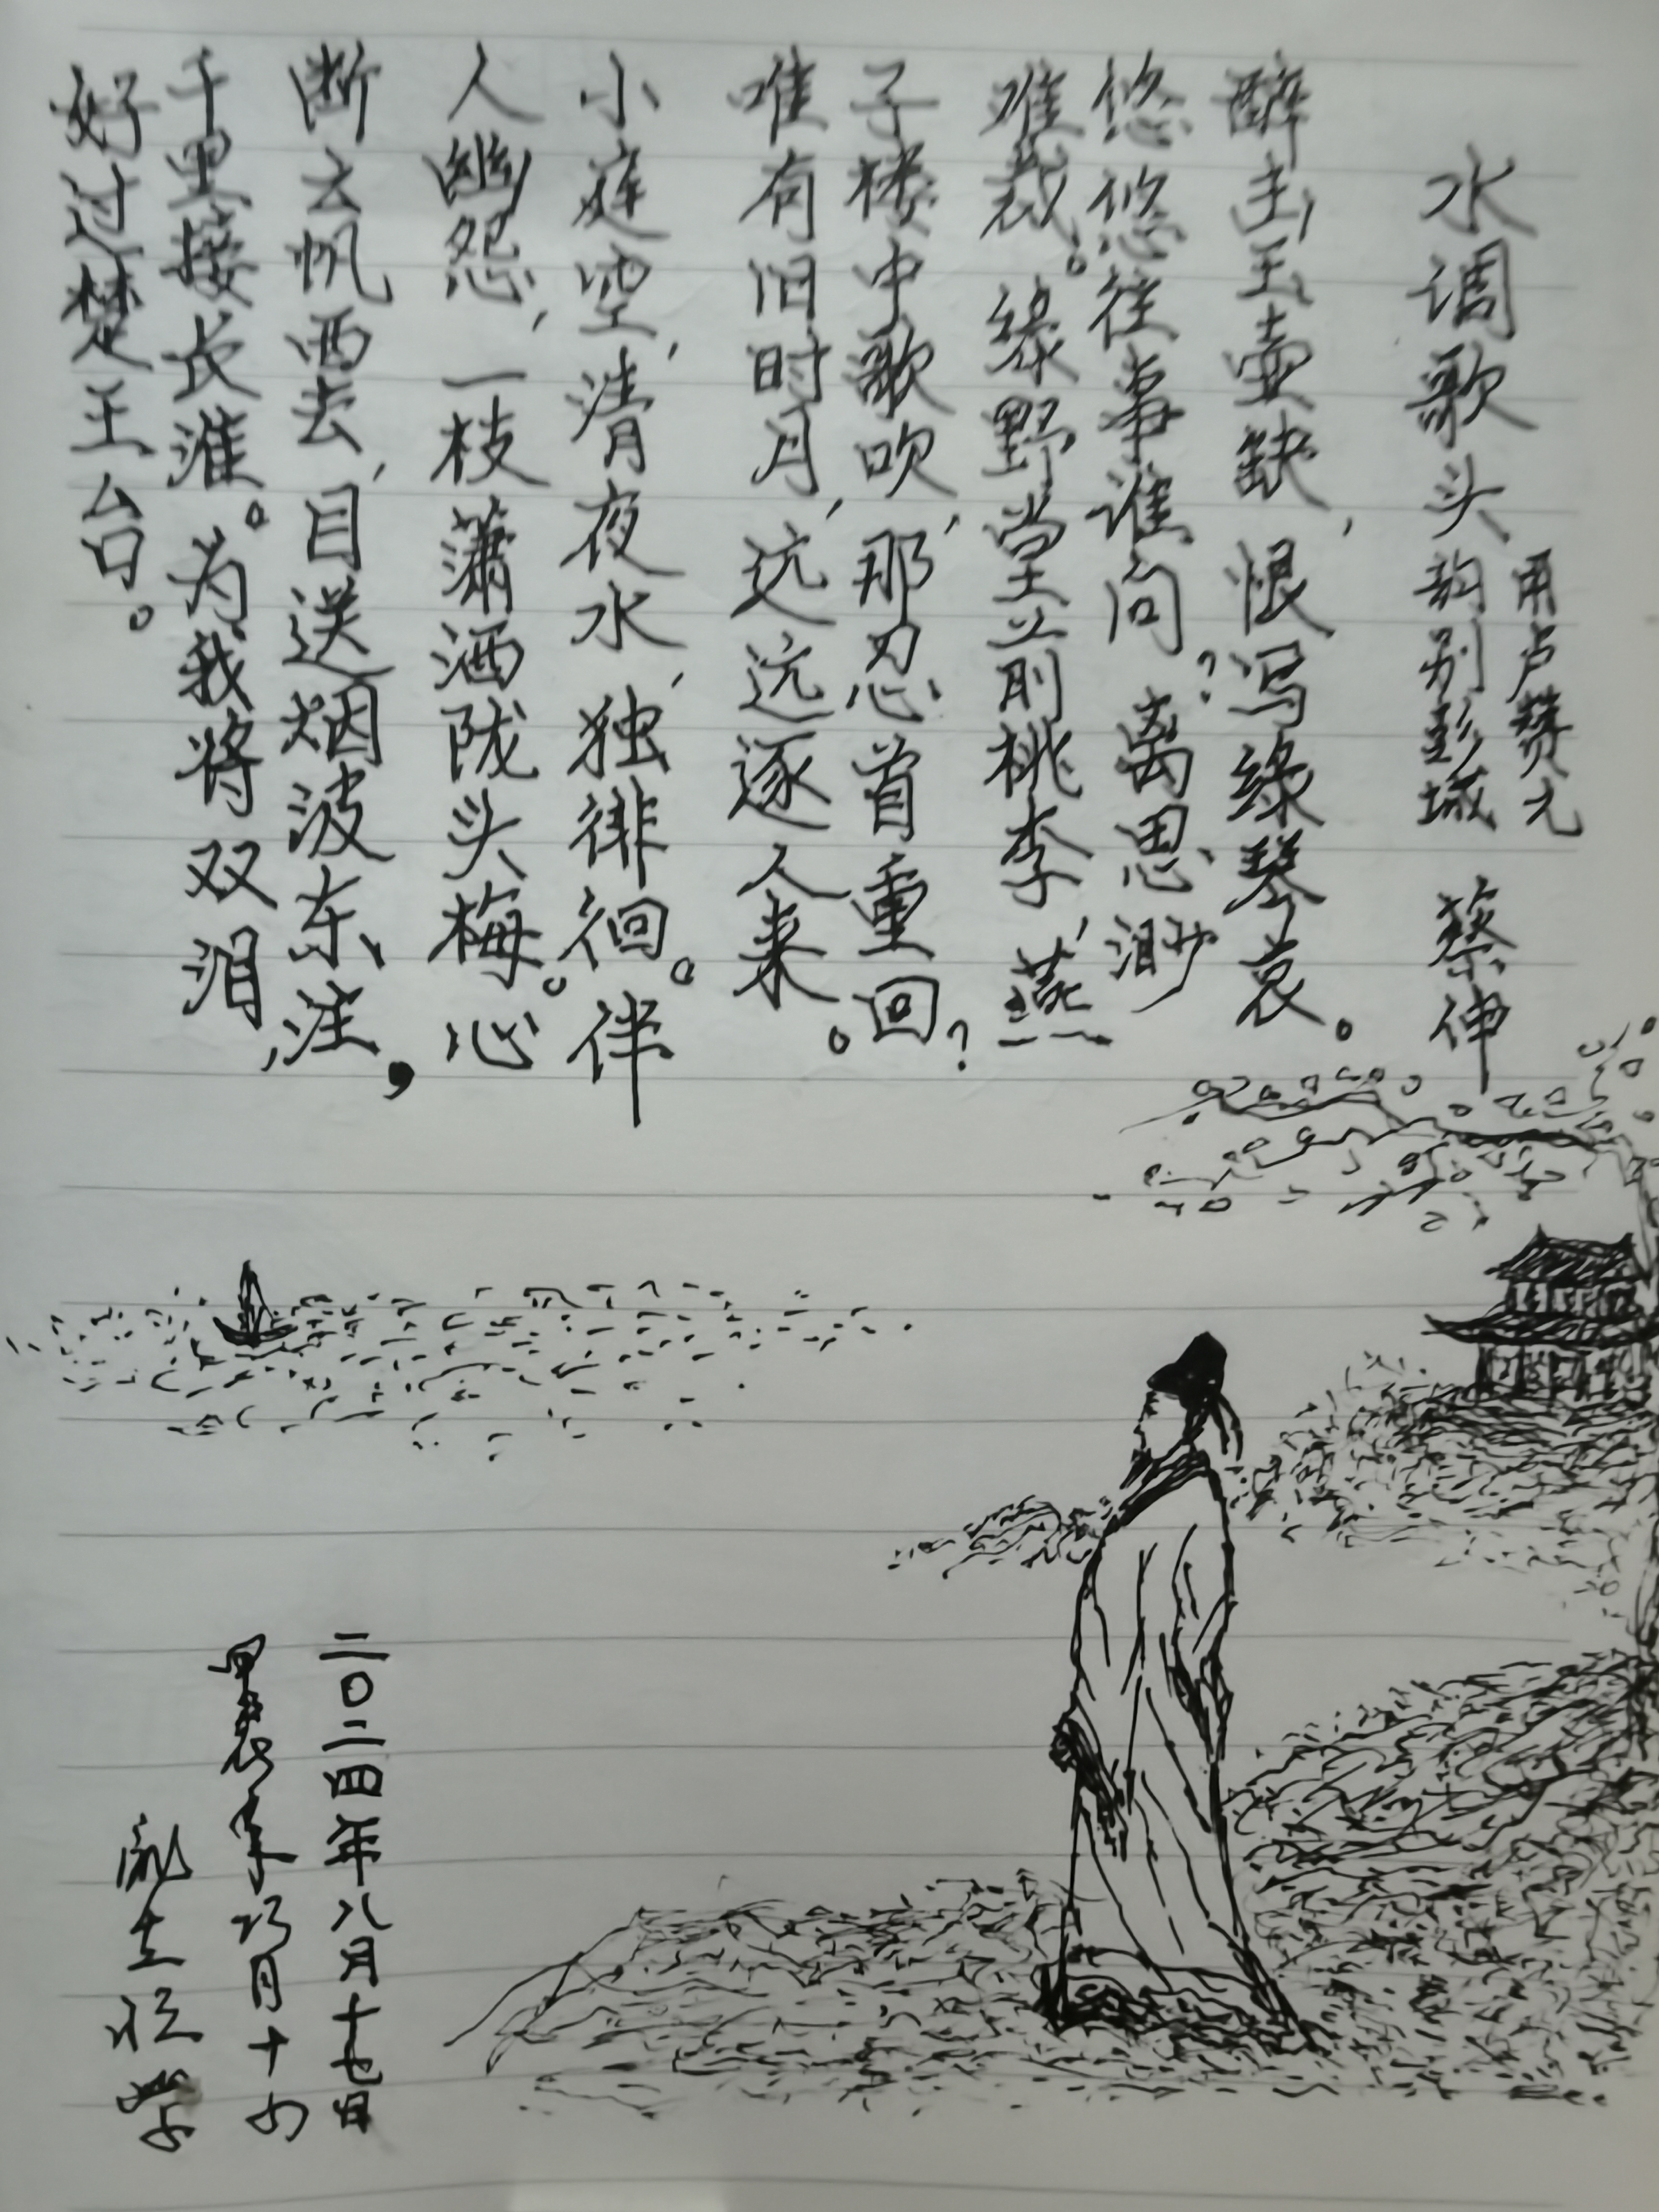 水调歌头 用卢赞元
韵别彭城 蔡伸
醉击玉壶缺，恨写绿琴哀。
悠悠往事谁问？离思渺
难裁。绿野堂前桃李，燕
子楼中歌吹，那忍首重回？
唯有旧时月，远远逐人来。
小庭空，清夜水，独徘徊。伴
人幽怨，一枝潇洒陇头梅。心
断云帆西去，目送烟波东注，
千里接长淮。为我将双泪，
好过楚王台。
二〇二四年八月十七日
甲辰年巧月十四